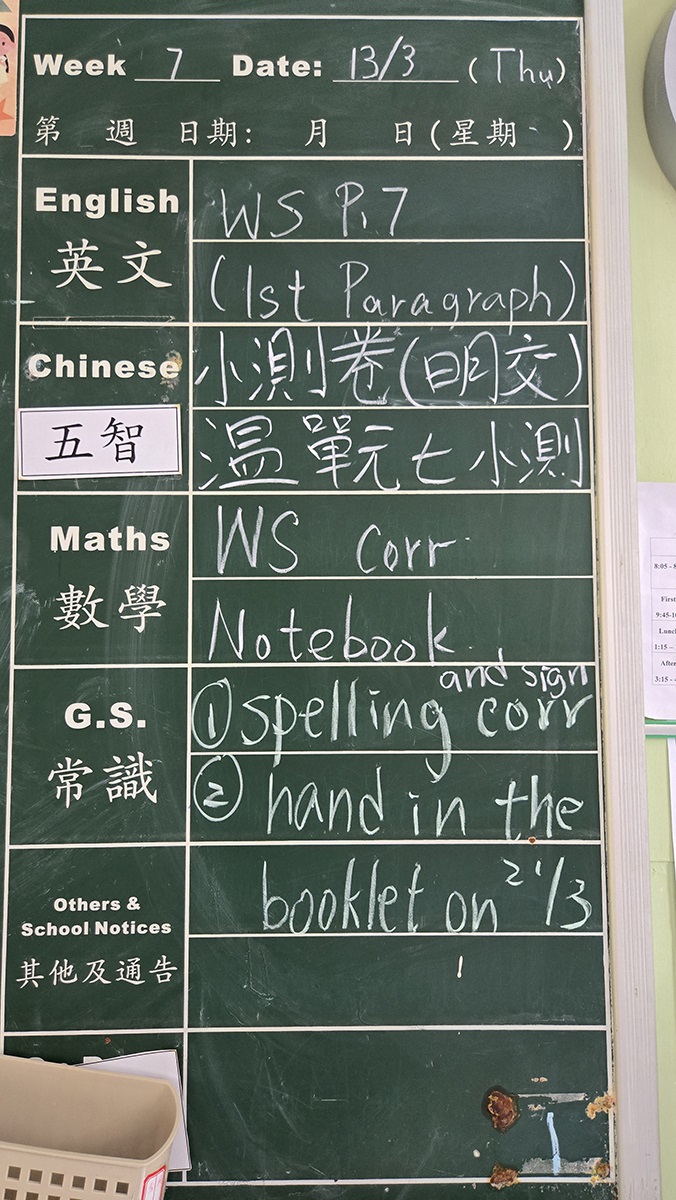 Week 7 Date: 13/3 (Thu)
第 週 日期: 月 日(星期 )
English
英文
WS P.7
(1st Paragraph)
Chinese
五智
小測卷(明交)
溫單元七小測
Maths
數學
WS Corr
Notebook
G.S.
常識
① spelling corr and sign
② hand in the
booklet on 21/3
Others &
School Notices
其他及通告
8:05 -
First
9:45-10
Lunc
1:15 –
After
3:15 -